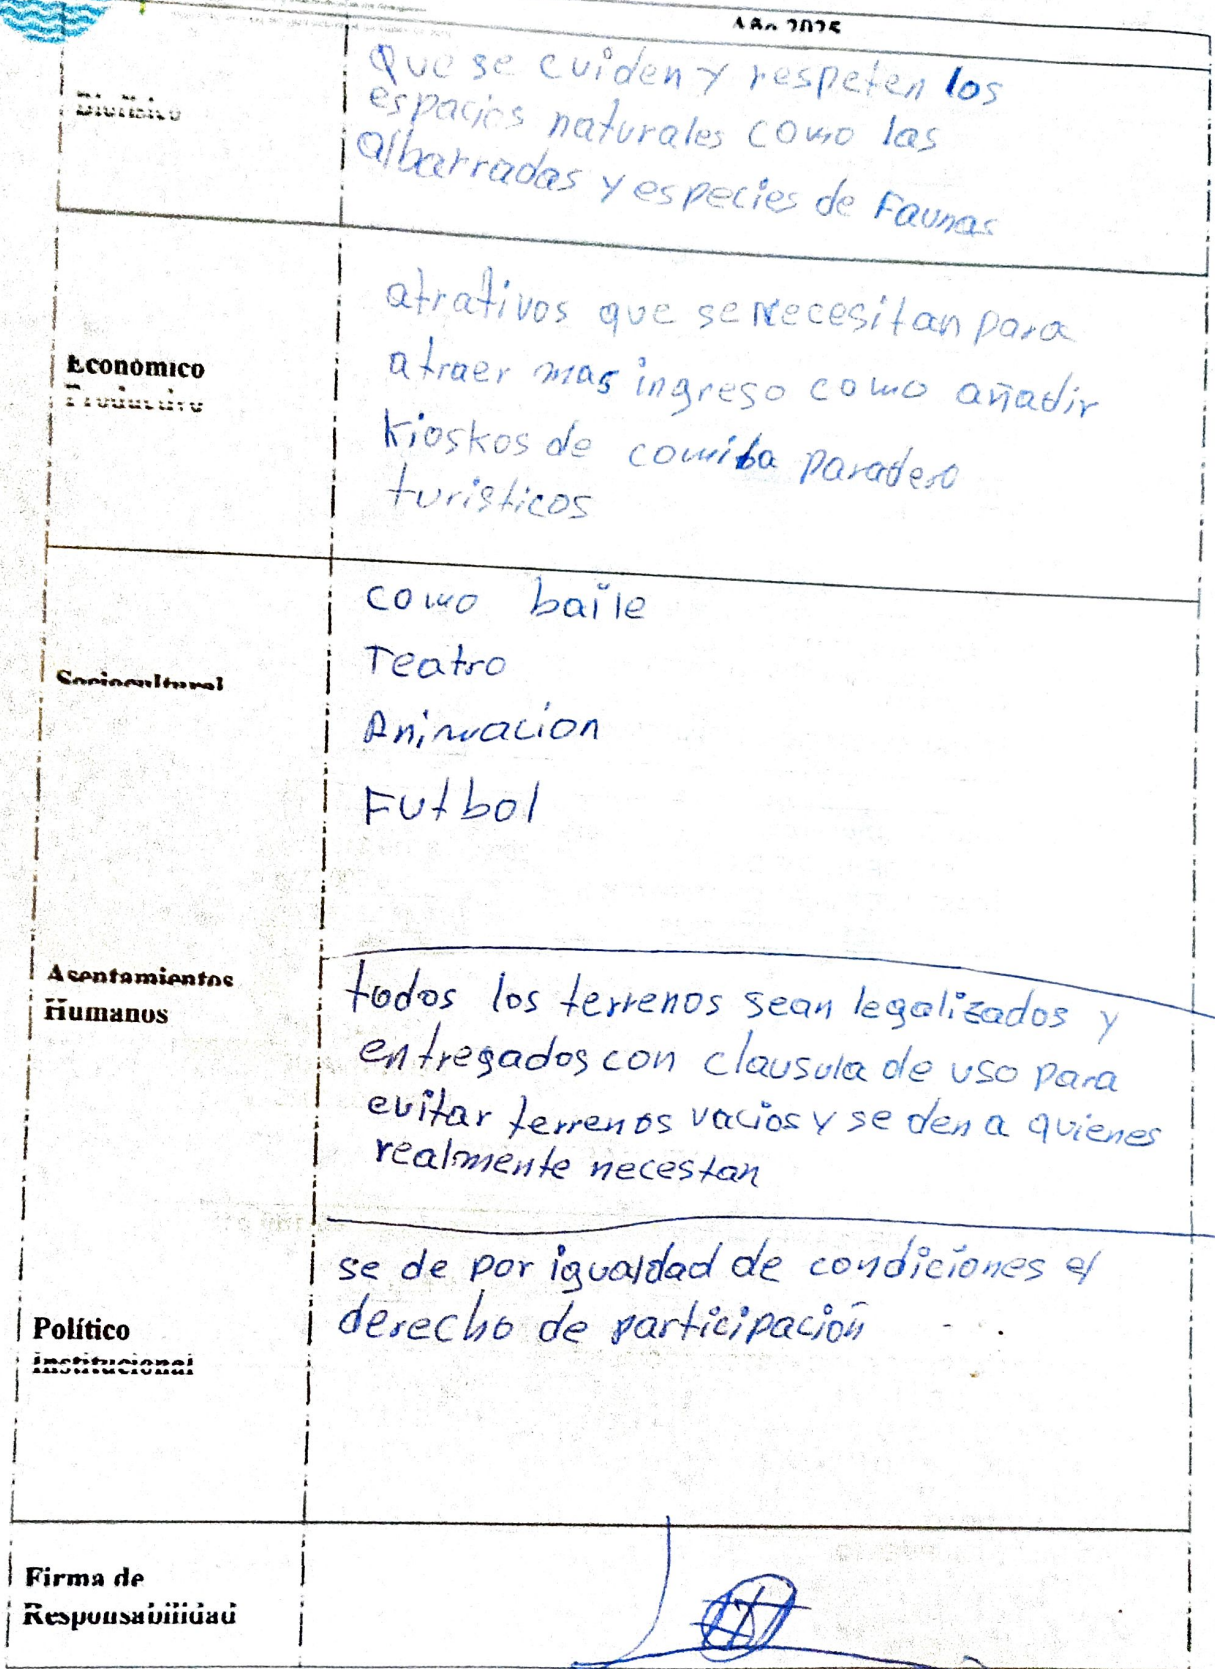 Año 2025
Biofísico
Que se cuiden y respeten los
espacios naturales como las
albarradas y especies de Faunas
Económico
Productivo
atrativos que se necesitan para
atraer mas ingreso como añadir
kioskos de comida paradero
turisticos
Sociocultural
como baile
Teatro
Animacion
Futbol
Asentamientos
Humanos
todos los terrenos sean legalizados y
entregados con clausula de uso para
evitar terrenos vacios y se den a quienes
realmente necestan
Político
Institucional
se de por igualdad de condiciones el
derecho de participación
Firma de
Responsabilidad